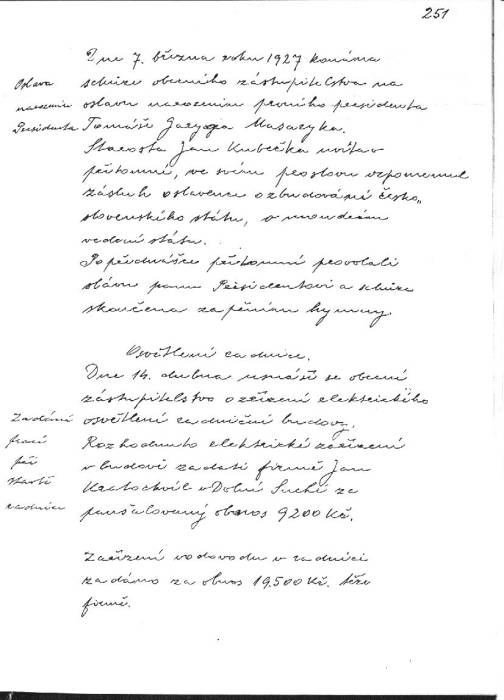 251
Dne 7. března roku 1927 konána
Oslava
schůze obecního zástupitelstva na
narozenin
oslavu narozenin prvního presidenta
Presidenta
Tomáše Masaryka.
Starosta Jan Kubečka uvítav
přítomné, ve svém proslovu vzpomenul
zásluh oslavence o zbudování česko„
slovenského státu, o moudrém
vedení státu.
Po přednášce přítomní provolali
slávu panu Presidentovi a schůze
skončena zapěním hymny.
Osvětlení radnice.
Dne 14. dubna usnáší se obecní
zástupitelstvo o zřízení elektrického
Zadání
osvětlení radniční budovy.
prací
Rozhodnuto elektrické zařízení
při
v budově zadati firmě Jan
stavbě
Kratochvíl v Dolní Suché za
radnice
paušalovaný obnos 9200 Kč.
Zařízení vodovodu v radnici
zadáno za obnos 19.500 Kč. téže
firmě.